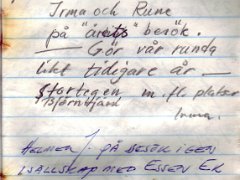 Irma och Rune
på "årets" besök.
— Gör vår runda
likt tidigare år —
Stortugen m. fl. platser
Björntjärn
Irma.
HELMER J. PÅ BESÖK IGEN
I SÄLLSKAP MED ESSEN EK